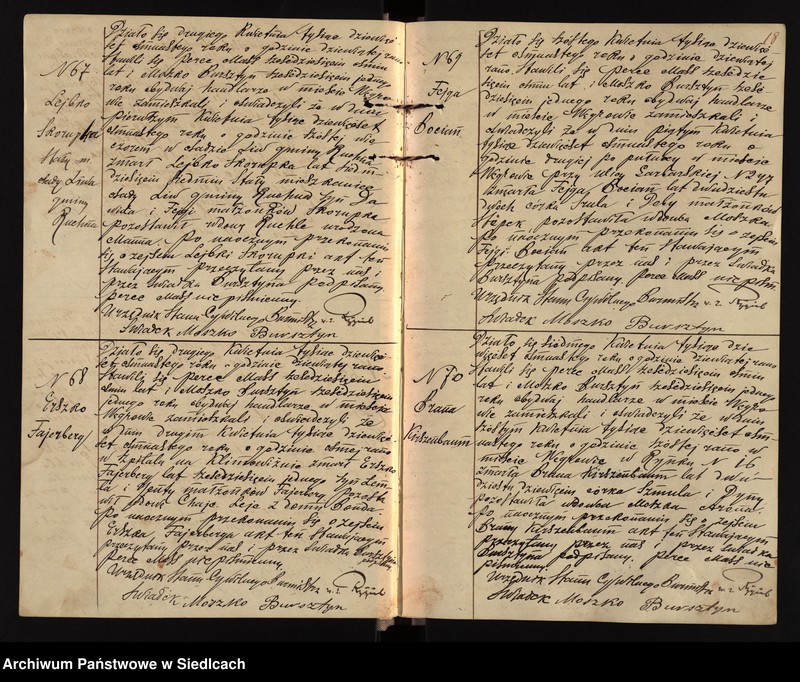 N 67
Lejbko
Skorupka
Stały m.
osady Liwa
gminy
Ruchna
Działo się drugiego Kwietnia tysiąc dziewięć
set ósmastego roku o godzinie dziewiątej rano
stawili się Perec Mass sześćdziesięciu ośmiu
lat i Moszko Bursztyn sześćdziesięciu jednego
roku obydwaj handlarze w mieście Węgro
wie zamieszkali i oświadczyli że w dniu
pierwszym Kwietnia tysiąc dziewięćset
ósmastego roku o godzinie szóstej wie
czorem w osadzie Liw gminy Ruchna
zmarł Lejbko Skorupka lat siedm
dziesięciu siedmiu stały mieszkaniec
osady Liw gminy Ruchna syn Da
wida i Fejgi małżonków Skorupka
pozostawił wdowę Ruchlę urodzoną
Po naocznym przekonaniu
się o zejściu Lejbki Skorupki akt ten
stawającym przeczytany przez nas i
przez świadka Bursztyna podpisany.
Perec Mass nie piśmienny.
Urzędnik Stanu Cywilnego Burmistrz
Świadek Moszko Bursztyn
N 68
Erszko
Fajerberg
Działo się drugiego Kwietnia tysiąc dziewię
set ósmastego roku o godzinie dziewiątej rano
Stawili się Perec Mass sześćdziesięciu
ośmiu lat i Moszko Bursztyn sześćdziesięciu
jednego roku obydwaj handlarze w mieście
Węgrowie zamieszkali i oświadczyli że
w dniu drugim Kwietnia tysiąc dziewięć
set ósmastego roku o godzinie ósmej rano
w szpitalu na Klimowiźnie zmarł Erszko
Fajerberg lat sześćdziesięciu jednego syn
i małżonków Fajerberg pozosta
wił żonę Chaję Leję z domu
Po naocznym przekonaniu się o zejściu
Erszka Fajerberga akt ten stawającym
przeczytany przez nas i przez świadka Bursztyna
Perec Mass nie piśmienny.
Urzędnik Stanu Cywilnego Burmistrz
Świadek Moszko Bursztyn
18
N 69
Fejga
Bocian
Działo się szóstego Kwietnia tysiąc dziewię
set ósmastego roku o godzinie dziewiątej
rano. Stawili się Perec Mass sześćdzie
sięciu ośmiu lat i Moszko Bursztyn sześć
dziesięciu jednego roku obydwaj handlarze
w mieście Węgrowie zamieszkali i
oświadczyli że w dniu piątym Kwietnia
tysiąc dziewięćset ósmastego roku o
godzinie drugiej po południu w mieście
Węgrowie przy ulicy Garbarskiej N 247
zmarła Fejga Bocian lat dwadzieścia
dwóch córka Srula i małżonków
pozostawiła wdowca Moszka.
Po naocznym przekonaniu się o zejściu
Fejgi Bocian akt ten stawającym
przeczytany przez nas i przez świadka
Bursztyna podpisany. Perec Mass nie piśm.
Urzędnik Stanu Cywilnego Burmistrz
Świadek Moszko Bursztyn
N 70
Brana
Kirszenbaum
Działo się siódmego Kwietnia tysiąc dzie
więćset ósmastego roku o godzinie dziewiątej rano
Stawili się Perec Mass sześćdziesięciu ośmiu
lat i Moszko Bursztyn sześćdziesięciu jednego
roku obydwaj handlarze w mieście Węgro
wie zamieszkali i oświadczyli że w dniu
szóstym Kwietnia tysiąc dziewięćset ósm
nastego roku o godzinie szóstej rano w
mieście Węgrowie w Rynku N 16
zmarła Brana Kirszenbaum lat dwu
dziestu dziewięciu córka Szmula i
pozostawiła wdowca Moszka Arona.
Po naocznym przekonaniu się o zejściu
Brany Kirszenbaum akt ten stawającym
przeczytany przez nas i przez świadka
Bursztyna podpisany. Perec Mass nie
piśmienny.
Urzędnik Stanu Cywilnego Burmistrz
Świadek Moszko Bursztyn
Archiwum Państwowe w Siedlcach